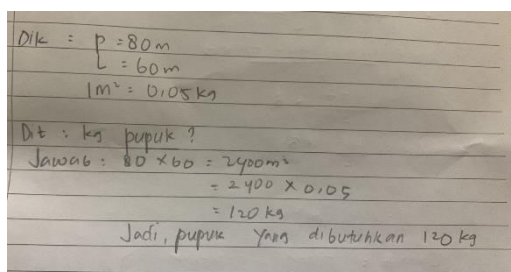 Dik : p = 80 m
L = 60 m
1 m² = 0,05 kg
Dit : kg pupuk ?
Jawab : 80 x 60 = 2400 m²
= 2400 x 0,05
= 120 kg
Jadi, pupuk yang dibutuhkan 120 kg